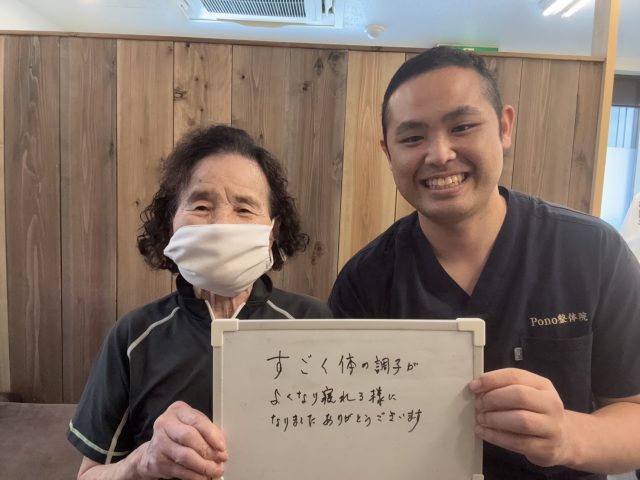 Pono整体院
すごく体の調子が
よくなり寝れる様に
なりましたありがとうございます